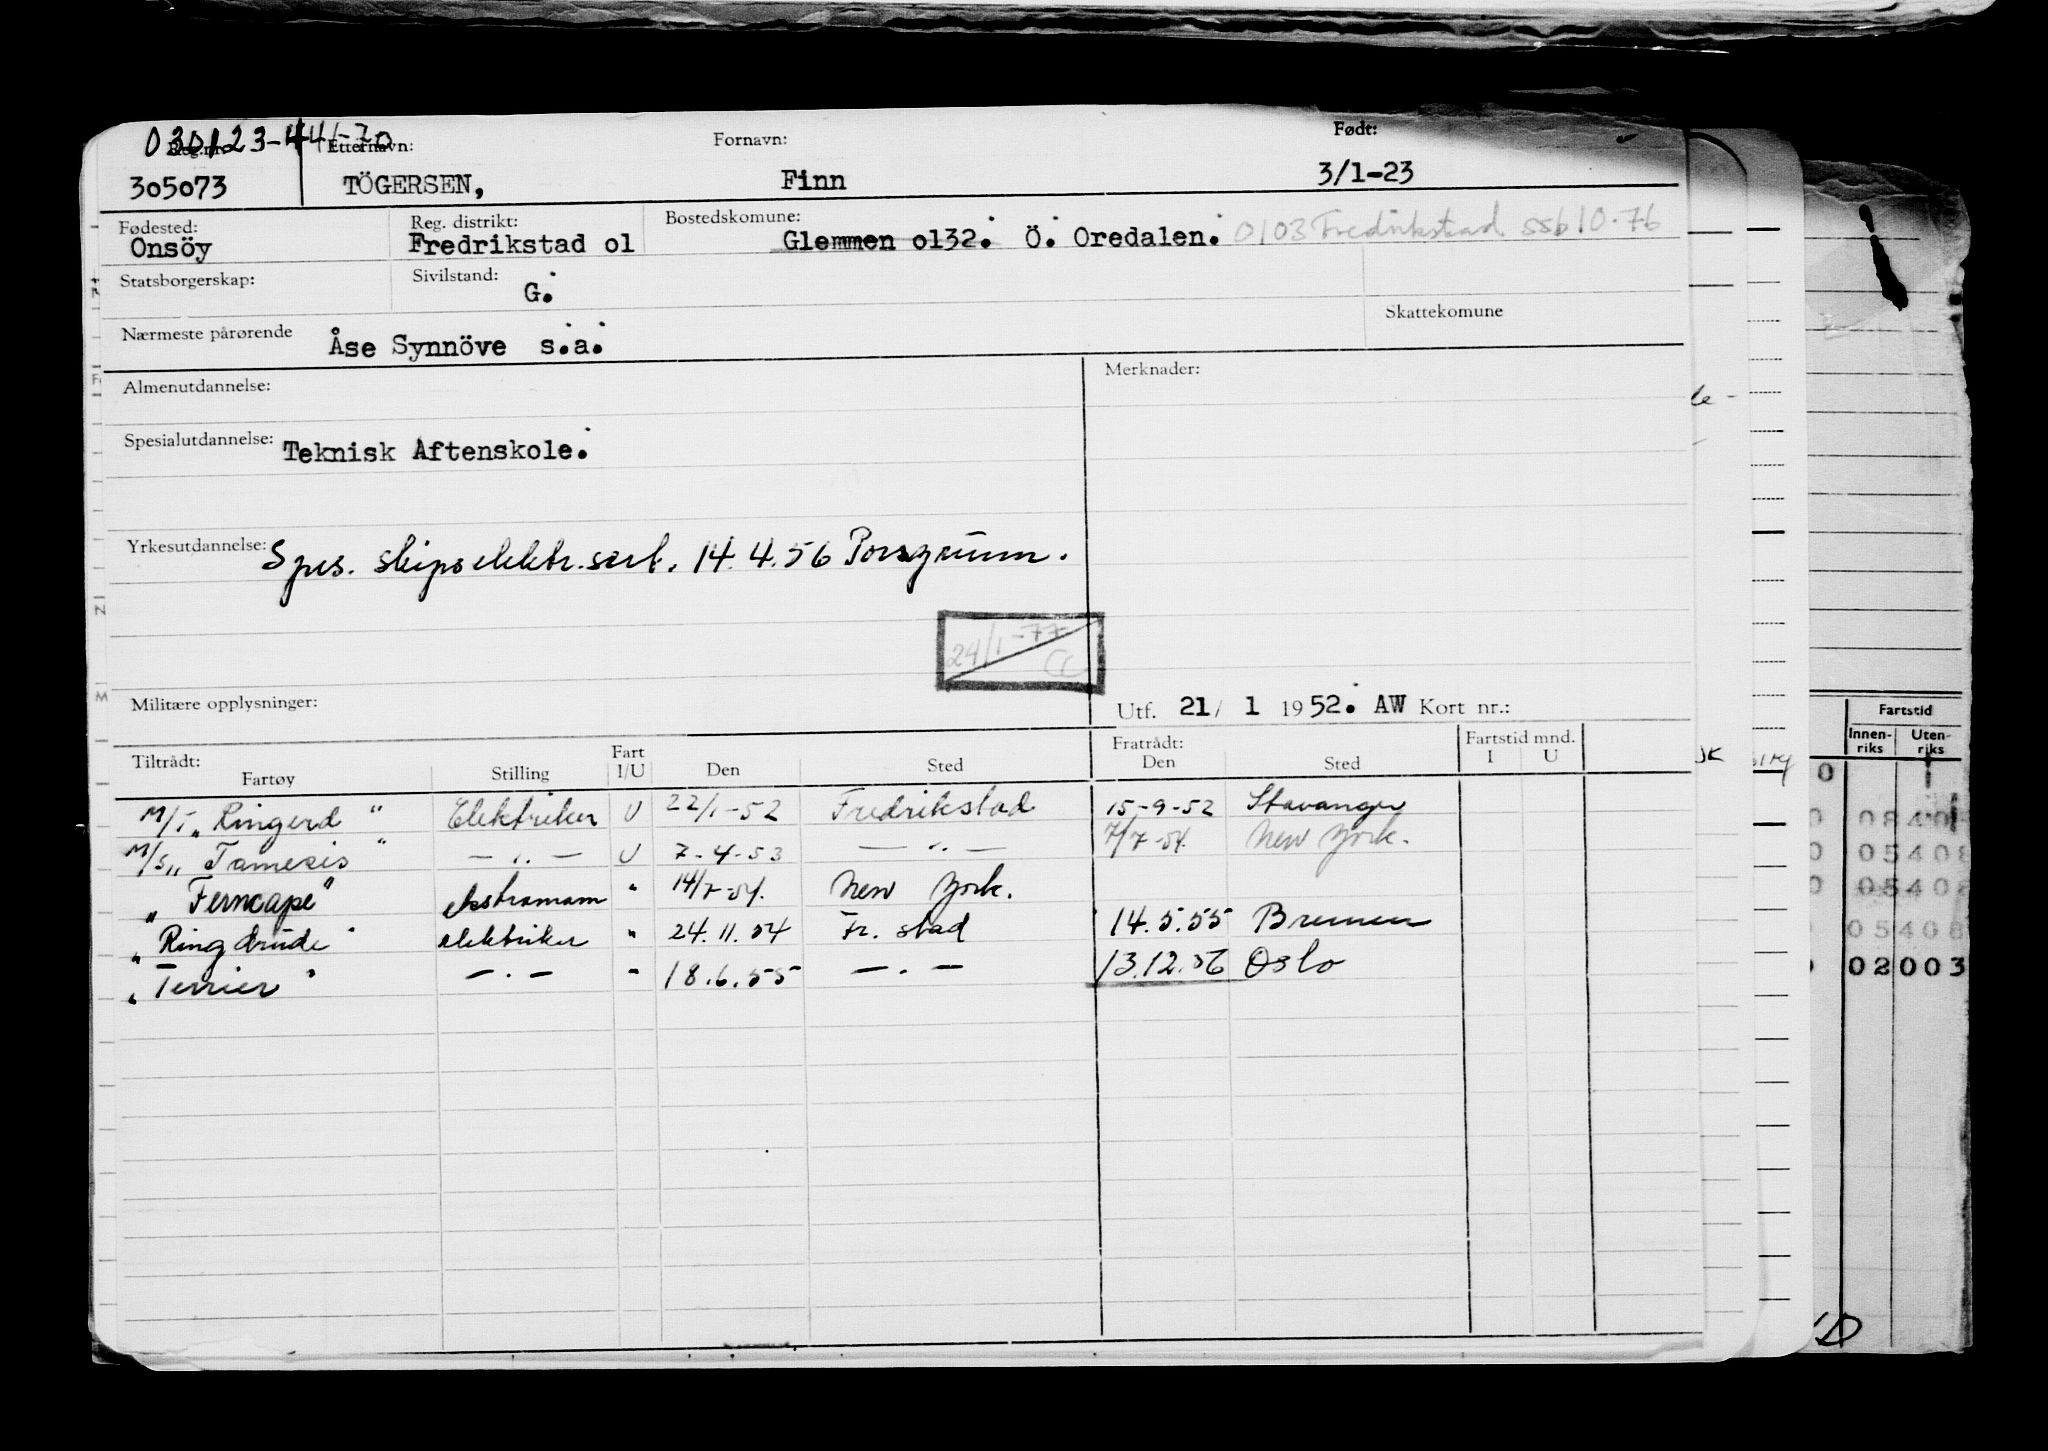 030123-44170
Reg.nr. Etternavn: Fornavn: Født:
305073 TÖGERSEN, Finn 3/1-23
Fødested: Reg. distrikt: Bostedskomune:
Onsöy Fredrikstad o1 Glemmen o132. Ö. Oredalen. 0103 Fredrikstad ssb 10-76
Statsborgerskap: Sivilstand: G.
Skattekomune
Nærmeste pårørende Åse Synnöve s.a.
Almenutdannelse: Merknader:
Spesialutdannelse: Teknisk Aftenskole.
Yrkesutdannelse: Spes. skipselektr.sert. 14.4.56 Porsgrunn.
24/1-77 CC
Militære opplysninger: Utf. 21/ 1 1952. AW Kort nr.:
Tiltrådt: Fart Fratrådt: Fartstid mnd.
Fartøy Stilling I/U Den Sted Den Sted I U
M/T "Ringerd" Elektriker U 22/1-52 Fredrikstad 15-9-52 Stavanger
M/S "Tamesis" — " — U 7-4-53 — " — 7/7-54. New York.
" Ferncape" ekstramann " 14/7-54. New York.
" Ringdrude" elektriker " 24.11.54 Fr. stad 14.5.55 Bremen
" Terrier" — " — " 18.6.55 — " — 13.12.56 Oslo
Fartstid
Innen- Uten-
riks riks
0 8 4 0
0 5 4 0 8
0 5 4 0 8
0 5 4 0 8
0 2 0 0 3